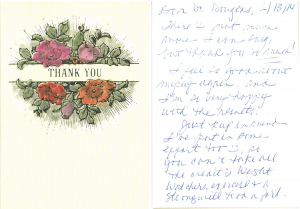 THANK YOU
Dear Dr. Douglas, 2/13/14
There's just much
more I can say,
but thank you so much!
I feel so good about
myself again and
I'm so very happy
with the results!
Don't keep in mind
I've put in some
effort too is, so
you can't take all
the credit is Weight
Watchers, exercise & a
strong will